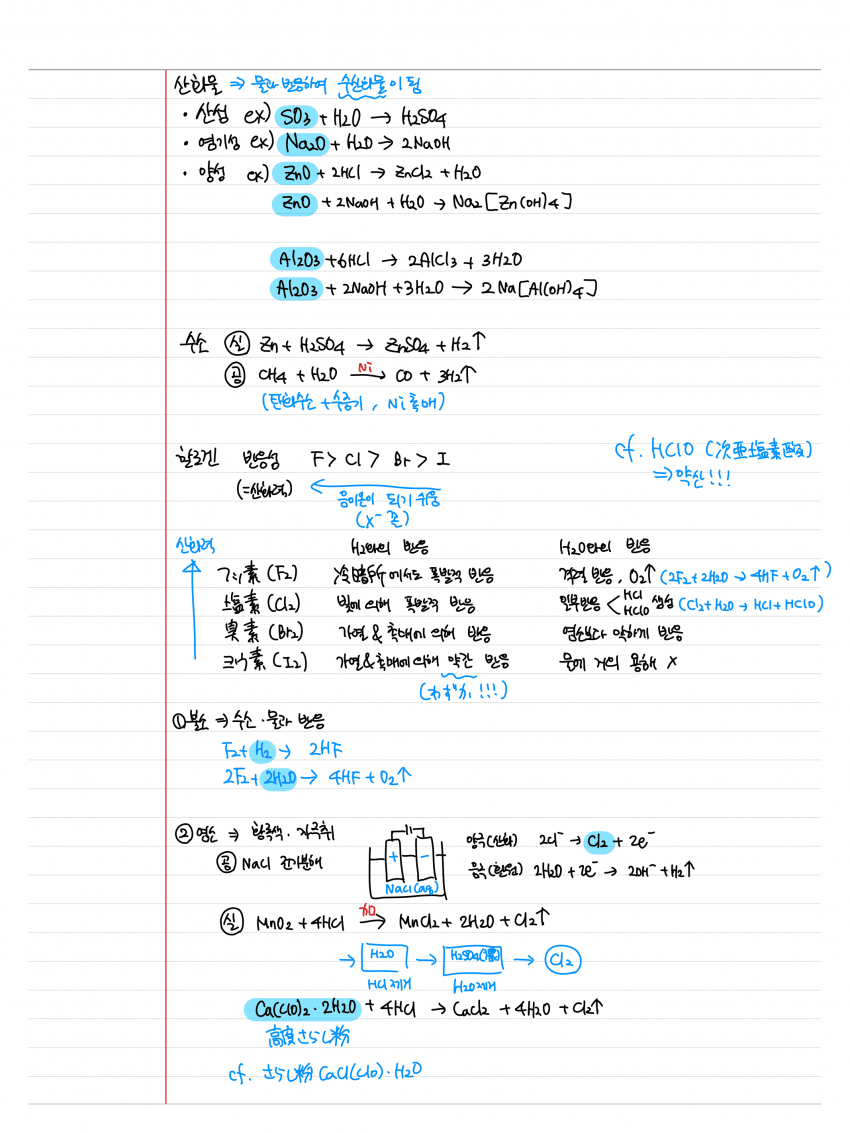 산화물 ⇒ 물과 반응하여 수산화물이 됨
· 산성 ex) SO3 + H2O → H2SO4
· 염기성 ex) Na2O + H2O → 2NaOH
· 양성 ex) ZnO + 2HCl → ZnCl2 + H2O
ZnO + 2NaOH + H2O → Na2[Zn(OH)4]
Al2O3 + 6HCl → 2AlCl3 + 3H2O
Al2O3 + 2NaOH + 3H2O → 2Na[Al(OH)4]
수소 실 Zn + H2SO4 → ZnSO4 + H2↑
공 CH4 + H2O Ni → CO + 3H2↑
(탄화수소 + 수증기, Ni 촉매)
cf. HClO (次亜塩素酸)
⇒ 약산!!!
할로겐 반응성 F > Cl > Br > I
(=산화력) ← 음이온이 되기 쉬움
(X⁻ 꼴)
산화력 H2와의 반응 H2O와의 반응
フッ素 (F2) 冷暗所에서도 폭발적 반응 격렬 반응, O2↑ (2F2+2H2O → 4HF+O2↑)
塩素 (Cl2) 빛에 의해 폭발적 반응 일부반응 < HCl HClO 생성 (Cl2+H2O → HCl+HClO)
臭素 (Br2) 가열 & 촉매에 의해 반응 염소보다 약하게 반응
ヨウ素 (I2) 가열&촉매에 의해 약간 반응 물에 거의 용해 X
(わずか!!!)
① 불소 ⇒ 수소·물과 반응
F2 + H2 → 2HF
2F2 + 2H2O → 4HF + O2↑
② 염소 ⇒ 황록색. 자극취
공 NaCl 전기분해
+ −
NaCl(aq)
양극(산화) 2Cl⁻ → Cl2 + 2e⁻
음극(환원) 2H2O + 2e⁻ → 2OH⁻ + H2↑
실 MnO2 + 4HCl 加 → MnCl2 + 2H2O + Cl2↑
→ H2O → H2SO4(濃) → Cl2
HCl제거 H2O제거
Ca(ClO)2·2H2O + 4HCl → CaCl2 + 4H2O + Cl2↑
高度さらし粉
cf. さらし粉 CaCl(ClO)·H2O